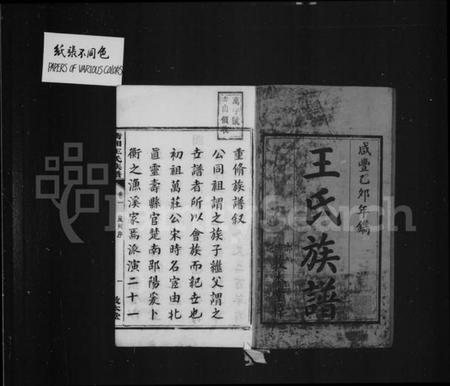 紙張不同色
PAPERS OF VARIOUS COLORS
咸豐乙卯年鐫
王氏族譜
重脩族譜叙
公同祖謂之族子繼父謂之
世譜者所以會族而記世也
初祖萬莊公宋時名宦由北
直靈壽縣官楚南邵陽爰卜
衡之漁溪家焉派演二十一
Search